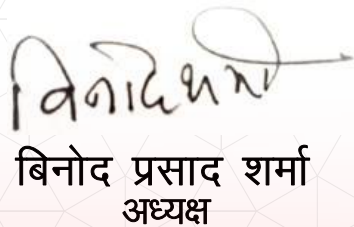 बिनोद शर्मा
बिनोद प्रसाद शर्मा
अध्यक्ष